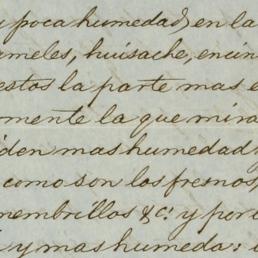 poca humedad en la
meles, huisache, encin
estos la parte mas e
mente la que mira
iden mas humedad
como son los fresnos,
membrillos &c. y por
y mas humeda: